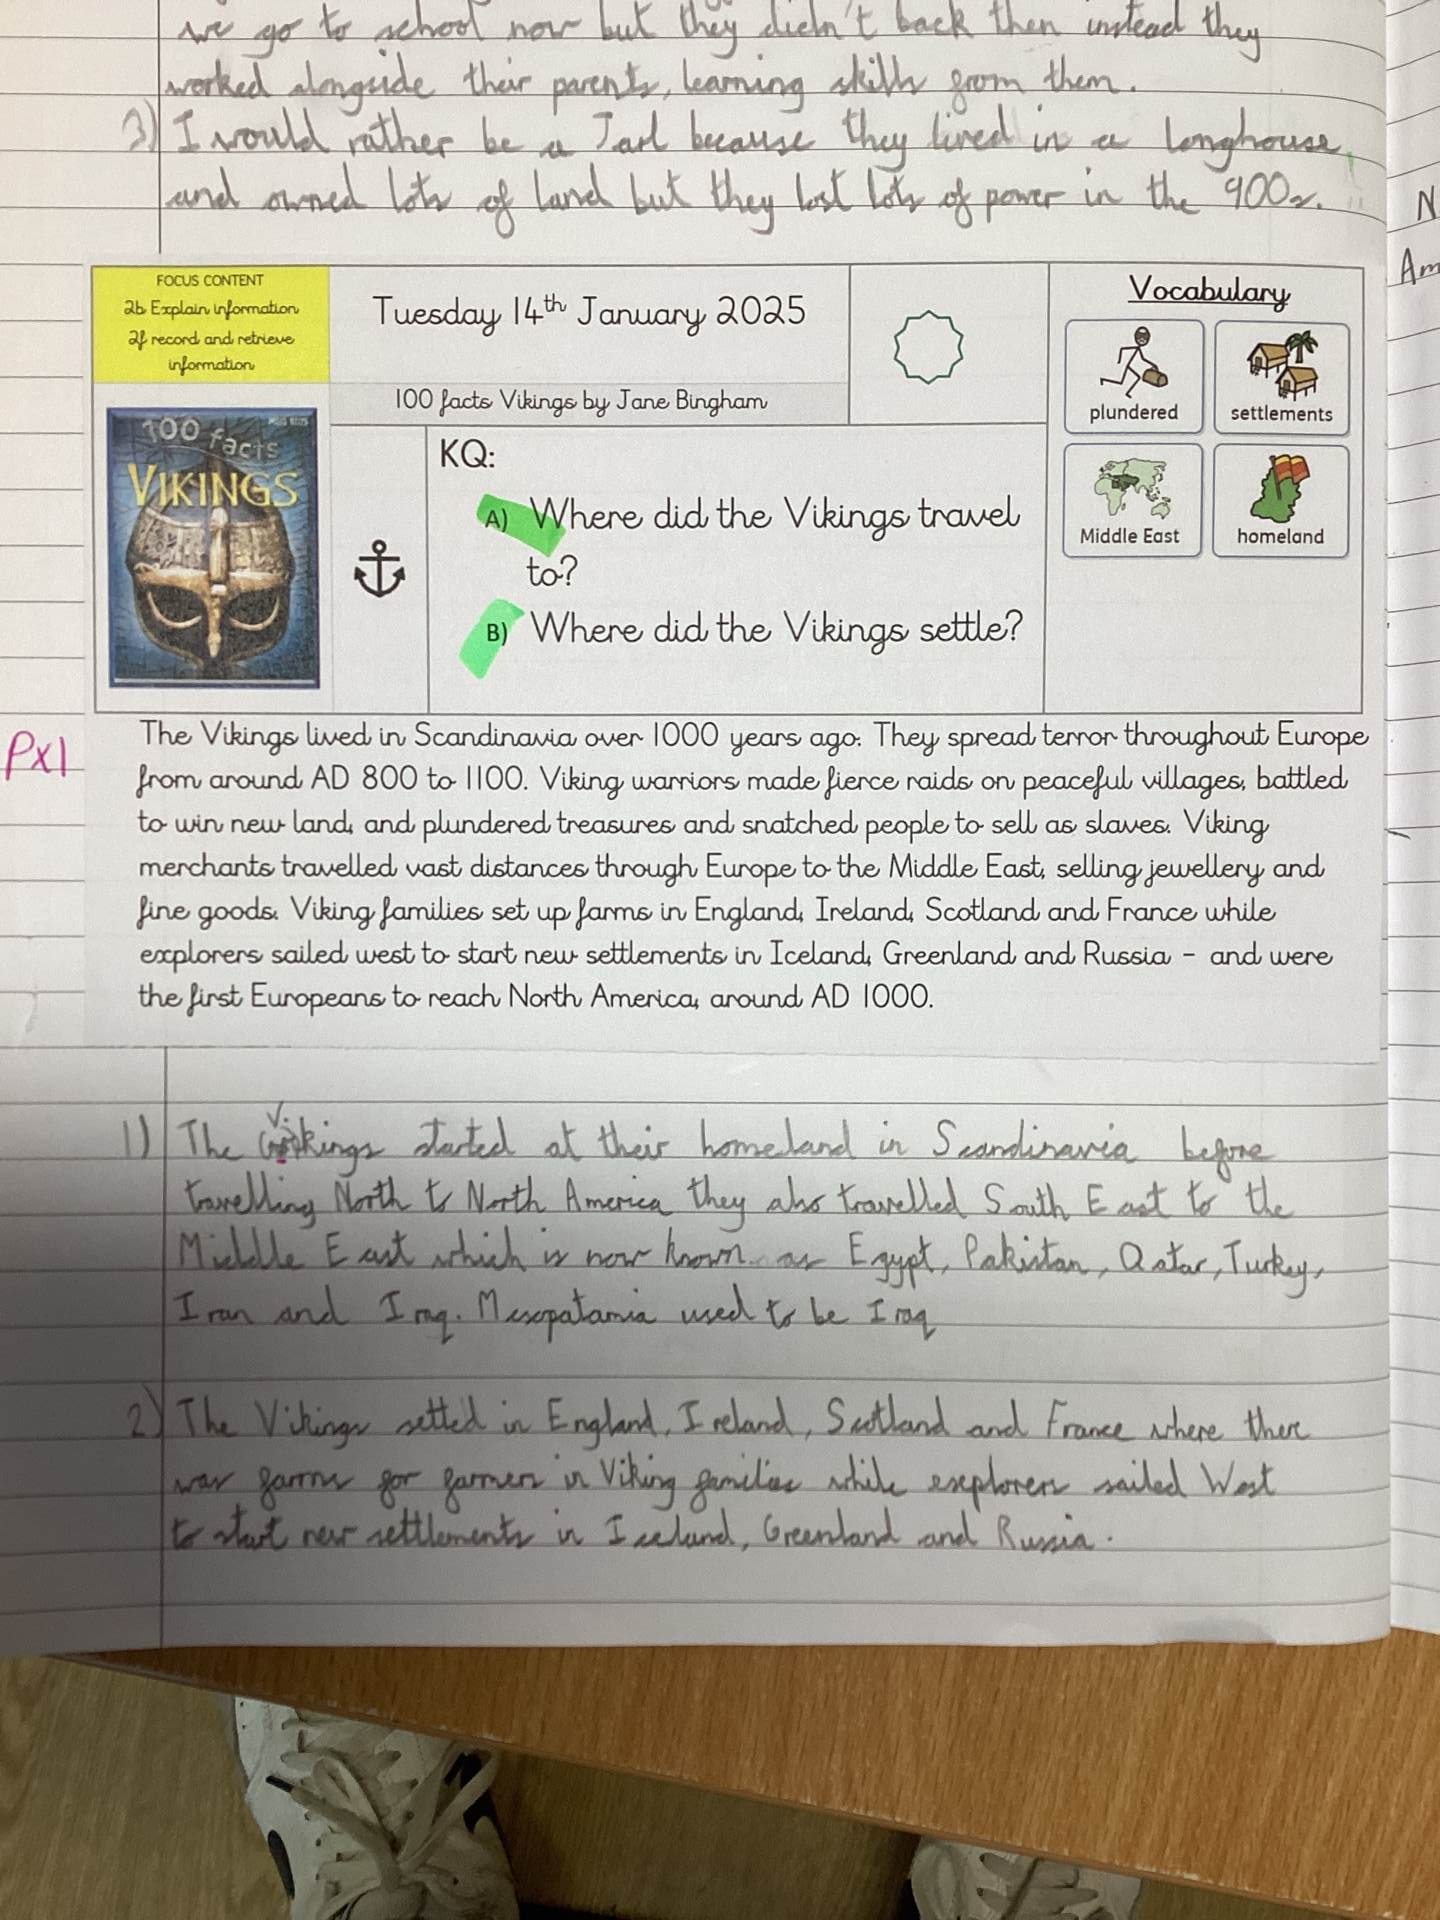 we go to school now but they didn't back then instead they
worked alongside their parents, learning skills from them.
3) I would rather be a Jarl because they lived in a longhouse
and owned lots of land but they lost lots of power in the 900s.
N
Am
FOCUS CONTENT
2b Explain information
2f record and retrieve
information
Tuesday 14th January 2025
100 facts Vikings by Jane Bingham
100 facts
VIKINGS
KQ:
A) Where did the Vikings travel
to?
B) Where did the Vikings settle?
Vocabulary
plundered
settlements
Middle East
homeland
Px1
The Vikings lived in Scandinavia over 1000 years ago. They spread terror throughout Europe
from around AD 800 to 1100. Viking warriors made fierce raids on peaceful villages, battled
to win new land, and plundered treasures and snatched people to sell as slaves. Viking
merchants travelled vast distances through Europe to the Middle East, selling jewellery and
fine goods. Viking families set up farms in England, Ireland, Scotland and France while
explorers sailed west to start new settlements in Iceland, Greenland and Russia - and were
the first Europeans to reach North America, around AD 1000.
1) The Vikings started at their homeland in Scandinavia before
travelling North to North America they also travelled South East to the
Middle East which is now known as Egypt, Pakistan, Qatar, Turkey,
Iran and Iraq. Mesopatamia used to be Iraq
2) The Vikings settled in England, Ireland, Scotland and France where there
was farms for farmers in Viking families while explorers sailed West
to start new settlements in Iceland, Greenland and Russia.